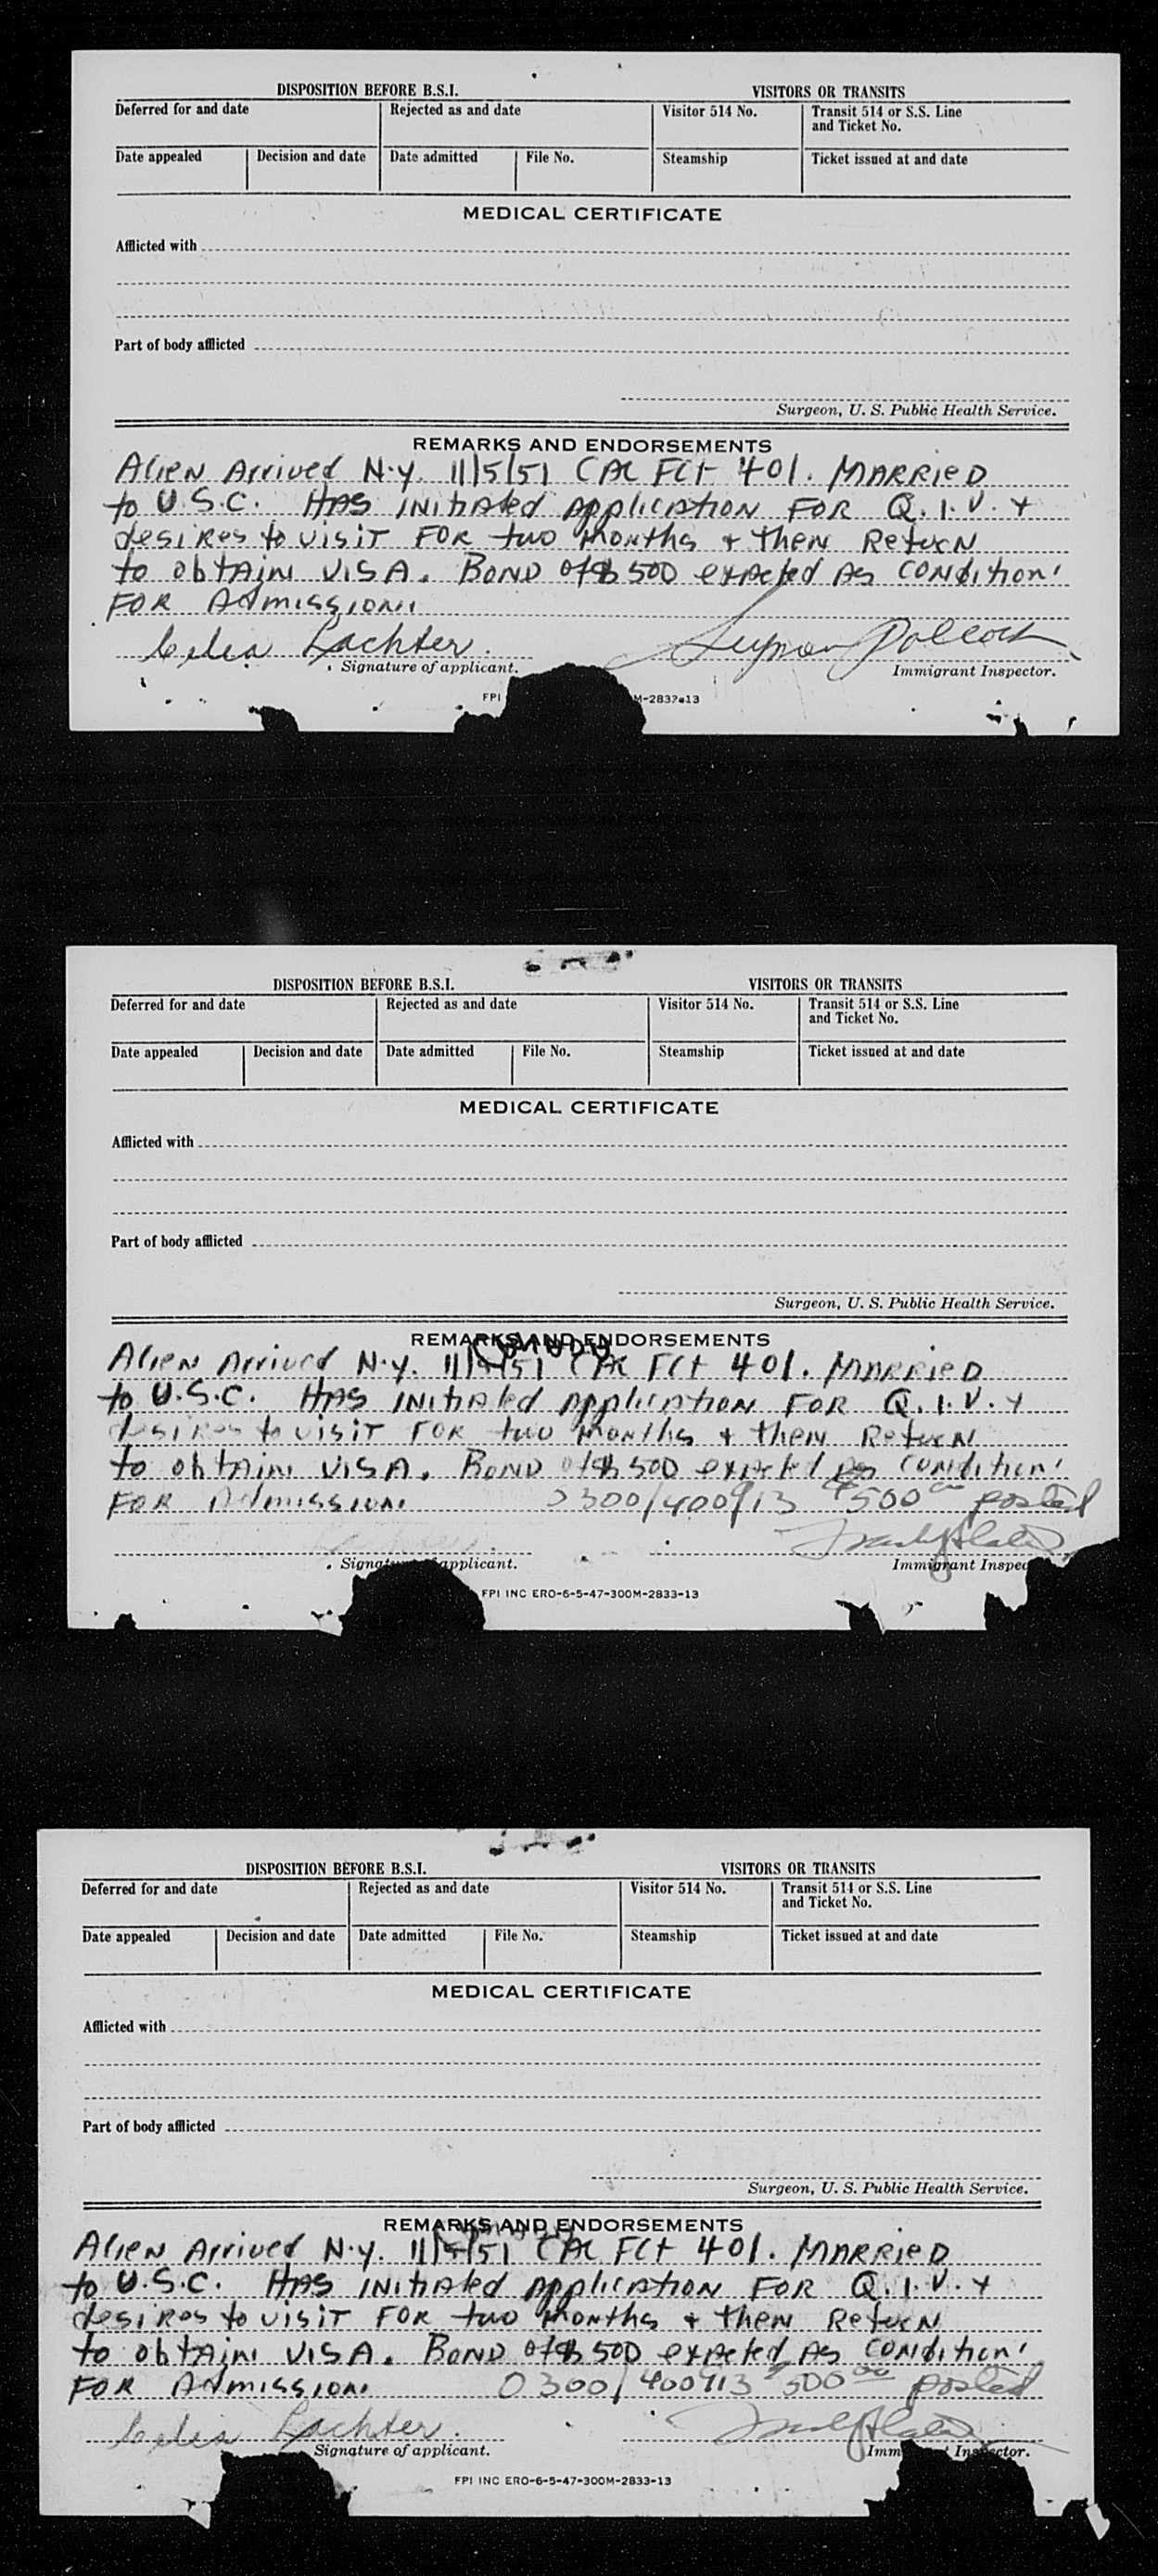 DISPOSITION BEFORE B.S.I. VISITORS OR TRANSITS
Deferred for and date Rejected as and date Visitor 514 No. Transit 514 or S.S. Line and Ticket No.
Date appealed Decision and date Date admitted File No. Steamship Ticket issued at and date
MEDICAL CERTIFICATE
Afflicted with
Part of body afflicted
Surgeon, U. S. Public Health Service.
REMARKS AND ENDORSEMENTS
Alien Arrived N.Y. 11/5/51 CPA Flt 401. MARRIED
to U.S.C. HAS INitiAted Application FOR Q.I.V. +
desires to visit FOR two months + then Return
to obtain VISA. BOND of $500 expected AS condition
FOR Admission.
Celia Lachter Seymour Pollock
Signature of applicant. Immigrant Inspector.
FPI M-2833-13
DISPOSITION BEFORE B.S.I. VISITORS OR TRANSITS
Deferred for and date Rejected as and date Visitor 514 No. Transit 514 or S.S. Line and Ticket No.
Date appealed Decision and date Date admitted File No. Steamship Ticket issued at and date
MEDICAL CERTIFICATE
Afflicted with
Part of body afflicted
Surgeon, U. S. Public Health Service.
REMARKS AND ENDORSEMENTS
Alien Arrived N.Y. 11/5/51 Flt 401. MARRIED
to U.S.C. HAS INitiAted Application FOR Q.I.V. +
desires to visit FOR two months + then Return
to obtain VISA. BOND of $500 expected as condition
FOR Admission. 0300/400913 $500 00 posted
Signature of applicant. Immigrant Inspec
FPI INC ERO-6-5-47-300M-2833-13
DISPOSITION BEFORE B.S.I. VISITORS OR TRANSITS
Deferred for and date Rejected as and date Visitor 514 No. Transit 514 or S.S. Line and Ticket No.
Date appealed Decision and date Date admitted File No. Steamship Ticket issued at and date
MEDICAL CERTIFICATE
Afflicted with
Part of body afflicted
Surgeon, U. S. Public Health Service.
REMARKS AND ENDORSEMENTS
Alien Arrived N.Y. 11/5/51 Flt 401. MARRIED
to U.S.C. HAS INitiAted Application FOR Q.I.V. +
desires to visit FOR two months + then Return
to obtain VISA. BOND of $500 expected AS condition
FOR Admission. 0300/400913 $500 00 posted
Celia Lachter
Signature of applicant. Imm Inspector.
FPI INC ERO-6-5-47-300M-2833-13